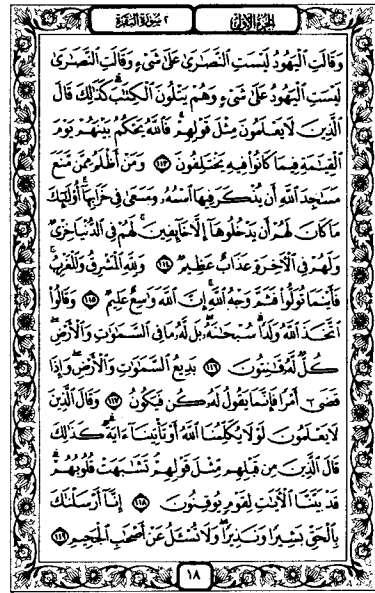 الجزء الأول
٢ سورة البقرة
وَقَالَتِ ٱلْيَهُودُ لَيْسَتِ ٱلنَّصَـٰرَىٰ عَلَىٰ شَىْءٍ وَقَالَتِ ٱلنَّصَـٰرَىٰ
لَيْسَتِ ٱلْيَهُودُ عَلَىٰ شَىْءٍ وَهُمْ يَتْلُونَ ٱلْكِتَـٰبَ ۗ كَذَٰلِكَ قَالَ
ٱلَّذِينَ لَا يَعْلَمُونَ مِثْلَ قَوْلِهِمْ ۚ فَٱللَّهُ يَحْكُمُ بَيْنَهُمْ يَوْمَ
ٱلْقِيَـٰمَةِ فِيمَا كَانُوا۟ فِيهِ يَخْتَلِفُونَ ١١٣ وَمَنْ أَظْلَمُ مِمَّن مَّنَعَ
مَسَـٰجِدَ ٱللَّهِ أَن يُذْكَرَ فِيهَا ٱسْمُهُۥ وَسَعَىٰ فِى خَرَابِهَآ ۚ أُو۟لَـٰٓئِكَ
مَا كَانَ لَهُمْ أَن يَدْخُلُوهَآ إِلَّا خَآئِفِينَ ۚ لَهُمْ فِى ٱلدُّنْيَا خِزْىٌ
وَلَهُمْ فِى ٱلْـَٔاخِرَةِ عَذَابٌ عَظِيمٌ ١١٤ وَلِلَّهِ ٱلْمَشْرِقُ وَٱلْمَغْرِبُ ۚ
فَأَيْنَمَا تُوَلُّوا۟ فَثَمَّ وَجْهُ ٱللَّهِ ۚ إِنَّ ٱللَّهَ وَٰسِعٌ عَلِيمٌ ١١٥ وَقَالُوا۟
ٱتَّخَذَ ٱللَّهُ وَلَدًا ۗ سُبْحَـٰنَهُۥ ۖ بَل لَّهُۥ مَا فِى ٱلسَّمَـٰوَٰتِ وَٱلْأَرْضِ ۖ
كُلٌّ لَّهُۥ قَـٰنِتُونَ ١١٦ بَدِيعُ ٱلسَّمَـٰوَٰتِ وَٱلْأَرْضِ ۖ وَإِذَا
قَضَىٰٓ أَمْرًا فَإِنَّمَا يَقُولُ لَهُۥ كُن فَيَكُونُ ١١٧ وَقَالَ ٱلَّذِينَ
لَا يَعْلَمُونَ لَوْلَا يُكَلِّمُنَا ٱللَّهُ أَوْ تَأْتِينَآ ءَايَةٌ ۗ كَذَٰلِكَ
قَالَ ٱلَّذِينَ مِن قَبْلِهِم مِّثْلَ قَوْلِهِمْ ۘ تَشَـٰبَهَتْ قُلُوبُهُمْ ۗ
قَدْ بَيَّنَّا ٱلْـَٔايَـٰتِ لِقَوْمٍ يُوقِنُونَ ١١٨ إِنَّآ أَرْسَلْنَـٰكَ
بِٱلْحَقِّ بَشِيرًا وَنَذِيرًا ۖ وَلَا تُسْـَٔلُ عَنْ أَصْحَـٰبِ ٱلْجَحِيمِ ١١٩
١٨